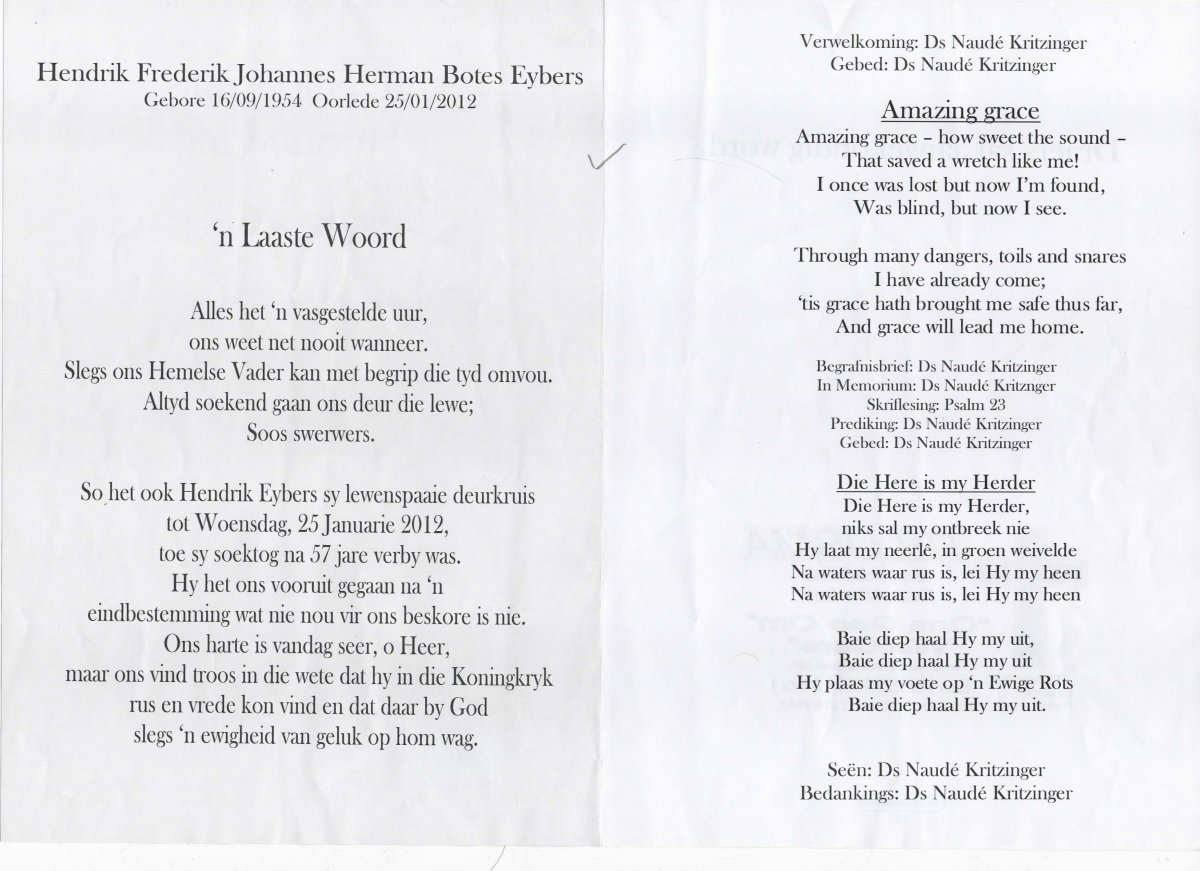 Hendrik Frederik Johannes Herman Botes Eybers
Gebore 16/09/1954 Oorlede 25/01/2012
‘n Laaste Woord
Alles het ‘n vasgestelde uur,
ons weet net nooit wanneer.
Slegs ons Hemelse Vader kan met begrip die tyd omvou.
Altyd soekend gaan ons deur die lewe;
Soos swerwers.
So het ook Hendrik Eybers sy lewenspaaie deurkruis
tot Woensdag, 25 Januarie 2012,
toe sy soektog na 57 jare verby was.
Hy het ons vooruit gegaan na ‘n
eindbestemming wat nie nou vir ons beskore is nie.
Ons harte is vandag seer, o Heer,
maar ons vind troos in die wete dat hy in die Koningkryk
rus en vrede kon vind en dat daar by God
slegs ‘n ewigheid van geluk op hom wag.
Verwelkoming: Ds Naudé Kritzinger
Gebed: Ds Naudé Kritzinger
Amazing grace
Amazing grace – how sweet the sound –
That saved a wretch like me!
I once was lost but now I’m found,
Was blind, but now I see.
Through many dangers, toils and snares
I have already come;
‘tis grace hath brought me safe thus far,
And grace will lead me home.
Begrafnisbrief: Ds Naudé Kritzinger
In Memorium: Ds Naudé Kritznger
Skriflesing: Psalm 23
Prediking: Ds Naudé Kritzinger
Gebed: Ds Naudé Kritzinger
Die Here is my Herder
Die Here is my Herder,
niks sal my ontbreek nie
Hy laat my neerlê, in groen weivelde
Na waters waar rus is, lei Hy my heen
Na waters waar rus is, lei Hy my heen
Baie diep haal Hy my uit,
Baie diep haal Hy my uit
Hy plaas my voete op ‘n Ewige Rots
Baie diep haal Hy my uit.
Seën: Ds Naudé Kritzinger
Bedankings: Ds Naudé Kritzinger